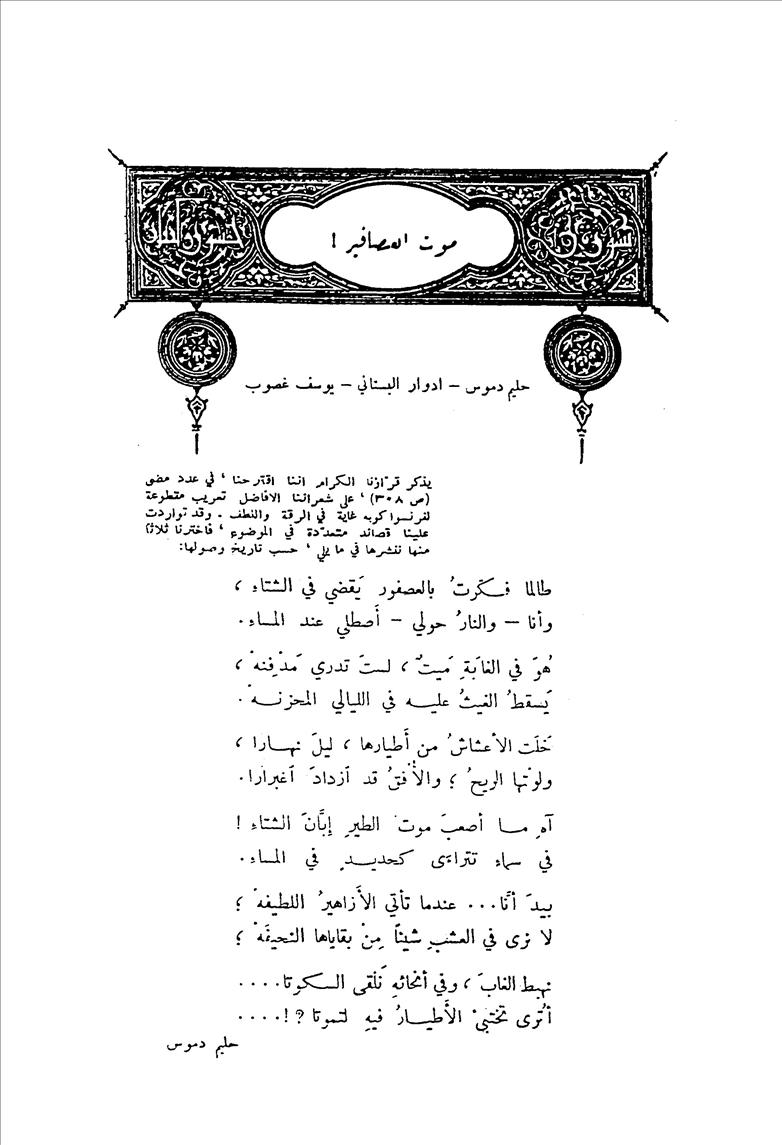 موت العصافير !
حليم دموس – ادوار البستاني – يوسف غصوب
يذكر قرّاؤنا الكرام اننا اقترحنا ، في عدد مضى
(ص ٣٠٨) ، على شعرائنا الافاضل تعريب مقطوعة
لفرنسوا كوبه غاية في الرقة واللطف . وقد تواردت
علينا قصائد متعدّدة في الموضوع ، فاخترنا ثلاثاً
منها ننشرها في ما يلي ، حسب تاريخ وصولها:
طالما فكّرتُ بالعصفور يَقضي في الشتاء ،
وأنا – والنارُ حولي – أَصطلي عند المساء.
هُوَ في الغابَةِ مَيتٌ ، لستَ تدري مَدْفِنهْ ،
يَسقطُ الغيثُ عليه في الليالي المحزنهْ.
خَلَت الأعشاشُ من أَطيارها ، ليلَ نهارا ،
ولوَتها الريحُ ؛ والأُفقُ قد آزدادَ آغبرارا.
آهِ ما أصعبَ موتَ الطيرِ إبَّانَ الشتاء !
في سماء تتراءَى كحديدٍ في المساء.
بيدَ أنَّا... عندما تأتي الأَزاهيرُ اللطيفهْ ؛
لا نرى في العشبِ شيئاً مِنْ بقاياها النحيفَهْ ؛
نهبط الغابَ ، وفي أنحائهِ نَلْقى السكوتا....
أتُرى تختبئْ الأَطيارُ فيهِ لتموتا ?!....
حليم دموس